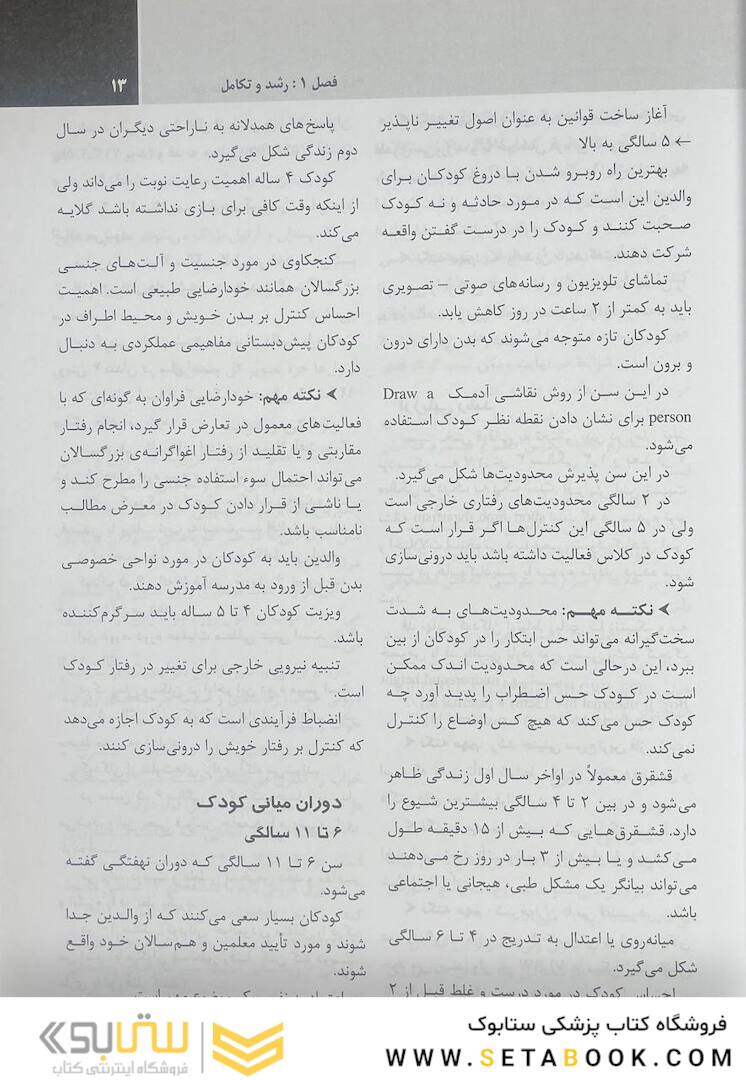 فصل ۱: رشد و تکامل
۱۳
آغاز ساخت قوانین به عنوان اصول تغییر ناپذیر
← ۵ سالگی به بالا
بهترین راه روبرو شدن با دروغ کودکان برای
والدین این است که در مورد حادثه و نه کودک
صحبت کنند و کودک را در درست گفتن واقعه
شرکت دهند.
تماشای تلویزیون و رسانه‌های صوتی – تصویری
باید به کمتر از ۲ ساعت در روز کاهش یابد.
کودکان تازه متوجه می‌شوند که بدن دارای درون
و برون است.
در این سن از روش نقاشی آدمک Draw a
person برای نشان دادن نقطه نظر کودک استفاده
می‌شود.
در این سن پذیرش محدودیت‌ها شکل می‌گیرد.
در ۲ سالگی محدودیت‌های رفتاری خارجی است
ولی در ۵ سالگی این کنترل‌ها اگر قرار است که
کودک در کلاس فعالیت داشته باشد باید درونی‌سازی
شود.
➤ نکته مهم: محدودیت‌های به شدت
سخت‌گیرانه می‌تواند حس ابتکار را در کودکان از بین
ببرد، این درحالی است که محدودیت اندک ممکن
است در کودک حس اضطراب را پدید آورد چه
کودک حس می‌کند که هیچ کس اوضاع را کنترل
نمی‌کند.
قشقرق معمولاً در اواخر سال اول زندگی ظاهر
می‌شود و در بین ۲ تا ۴ سالگی بیشترین شیوع را
دارد. قشقرق‌هایی که بیش از ۱۵ دقیقه طول
می‌کشد و یا بیش از ۳ بار در روز رخ می‌دهند
می‌تواند بیانگر یک مشکل طبی، هیجانی یا اجتماعی
باشد.
میانه‌روی یا اعتدال به تدریج در ۴ تا ۶ سالگی
شکل می‌گیرد.
احساس کودک در مورد درست و غلط قبل از ۲
پاسخ‌های همدلانه به ناراحتی دیگران در سال
دوم زندگی شکل می‌گیرد.
کودک ۴ ساله اهمیت رعایت نوبت را می‌داند ولی
از اینکه وقت کافی برای بازی نداشته باشد گلایه
می‌کند.
کنجکاوی در مورد جنسیت و آلت‌های جنسی
بزرگسالان همانند خودارضایی طبیعی است. اهمیت
احساس کنترل بر بدن خویش و محیط اطراف در
کودکان پیش‌دبستانی مفاهیمی عملکردی به دنبال
دارد.
➤ نکته مهم: خودارضایی فراوان به گونه‌ای که با
فعالیت‌های معمول در تعارض قرار گیرد، انجام رفتار
مقاربتی و یا تقلید از رفتار اغواگرانه‌ی بزرگسالان
می‌تواند احتمال سوء استفاده جنسی را مطرح کند و
یا ناشی از قرار دادن کودک در معرض مطالب
نامناسب باشد.
والدین باید به کودکان در مورد نواحی خصوصی
بدن قبل از ورود به مدرسه آموزش دهند.
ویزیت کودکان ۴ تا ۵ ساله باید سرگرم‌کننده
باشد.
تنبیه نیرویی خارجی برای تغییر در رفتار کودک
است.
انضباط فرآیندی است که به کودک اجازه می‌دهد
که کنترل بر رفتار خویش را درونی‌سازی کنند.
دوران میانی کودک
۶ تا ۱۱ سالگی
سن ۶ تا ۱۱ سالگی که دوران نهفتگی گفته
می‌شود.
کودکان بسیار سعی می‌کنند که از والدین جدا
شوند و مورد تأیید معلمین و هم‌سالان خود واقع
شوند.
فروشگاه کتاب پزشکی ستابوک
WWW.SETABOOK.COM
ستابوک
فروشگاه اینترنتی کتاب